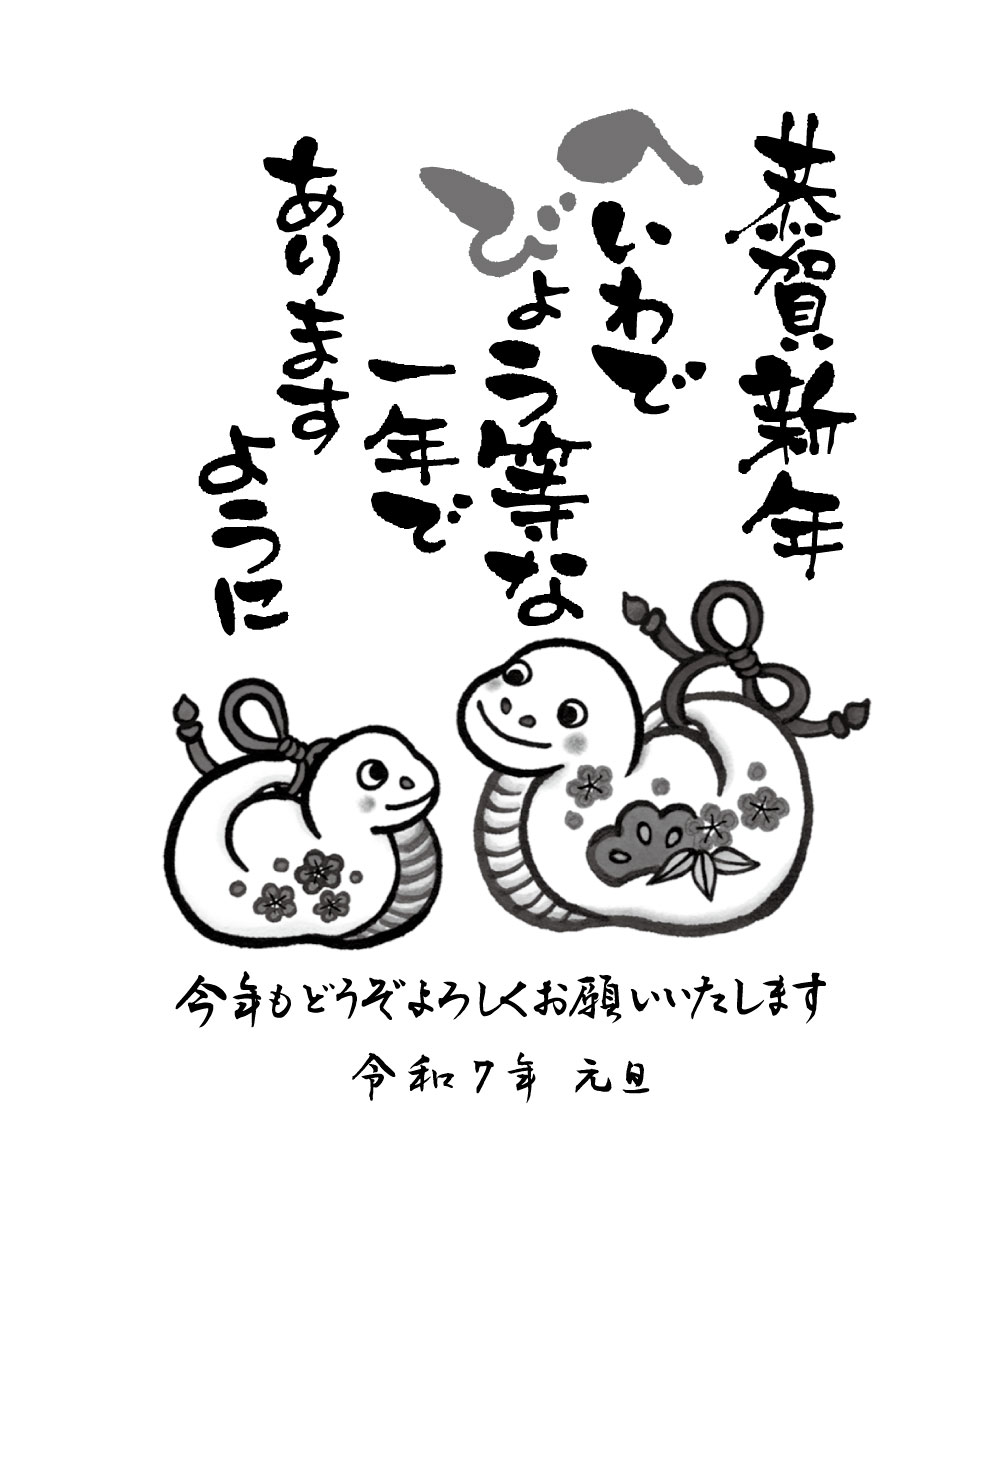 恭賀新年
へいわで
びょう等な
一年で
あります
ように
今年もどうぞよろしくお願いいたします
令和7年 元旦